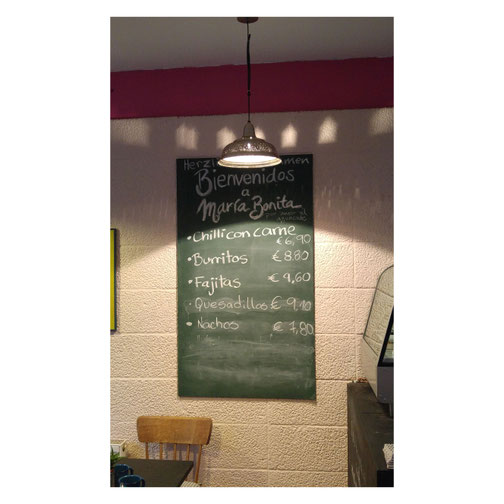 Bienvenidos
a
María Bonita
• Chilli con carne
€ 6,90
• Burritos € 8.80
• Fajitas € 9,60
• Quesadillas €
• Nachos € 7,80